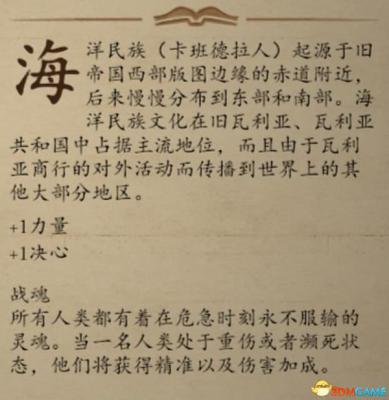 海洋民族（卡班德拉人）起源于旧
帝国西部版图边缘的赤道附近，
后来慢慢分布到东部和南部。海
洋民族文化在旧瓦利亚、瓦利亚
共和国中占据主流地位，而且由于瓦利
亚商行的对外活动而传播到世界上的其
他大部分地区。
+1力量
+1决心
战魂
所有人类都有着在危急时刻永不服输的
灵魂。当一名人类处于重伤或者濒死状
态，他们将获得精准以及伤害加成。
3DMGAME